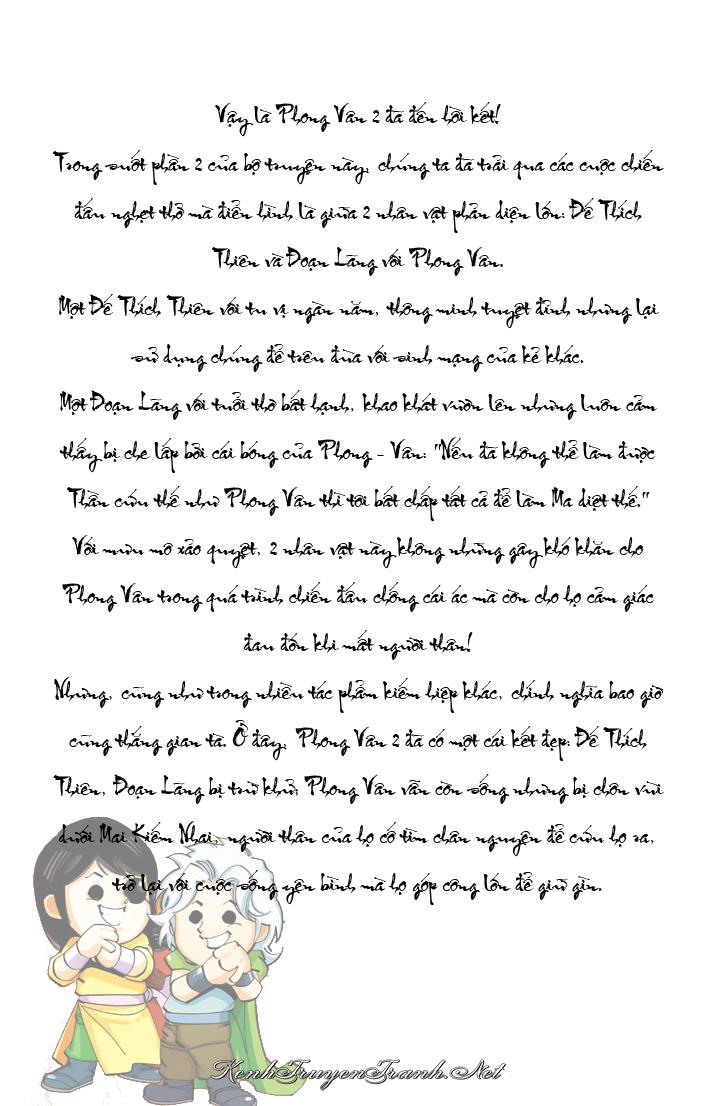 Vậy là Phong Vân 2 đã đến hồi kết!
Trong suốt phần 2 của bộ truyện này, chúng ta đã trải qua các cuộc chiến
đấu nghẹt thở mà điển hình là giữa 2 nhân vật phản diện lớn: Đế Thích
Thiên và Đoạn Lãng với Phong Vân.
Một Đế Thích Thiên với tu vị ngàn năm, thông minh tuyệt đỉnh nhưng lại
sử dụng chúng để trêu đùa với sinh mạng của kẻ khác.
Một Đoạn Lãng với tuổi thơ bất hạnh, khao khát vươn lên nhưng luôn cảm
thấy bị che lấp bởi cái bóng của Phong - Vân: "Nếu đã không thể làm được
Thần cứu thế như Phong Vân thì tôi bất chấp tất cả để làm Ma diệt thế."
Với mưu mô xảo quyệt, 2 nhân vật này không những gây khó khăn cho
Phong Vân trong quá trình chiến đấu chống cái ác mà còn cho họ cảm giác
đau đớn khi mất người thân!
Nhưng, cũng như trong nhiều tác phẩm kiếm hiệp khác, chính nghĩa bao giờ
cũng thắng gian tà. Ở đây, Phong Vân 2 đã có một cái kết đẹp: Đế Thích
Thiên, Đoạn Lãng bị trừ khử; Phong Vân vẫn còn sống nhưng bị chôn vùi
dưới Mai Kiếm Nhai, người thân của họ cố tìm chân nguyện để cứu họ ra,
trở lại với cuộc sống yên bình mà họ góp công lớn để giữ gìn.
KenhTruyenTranh.Net